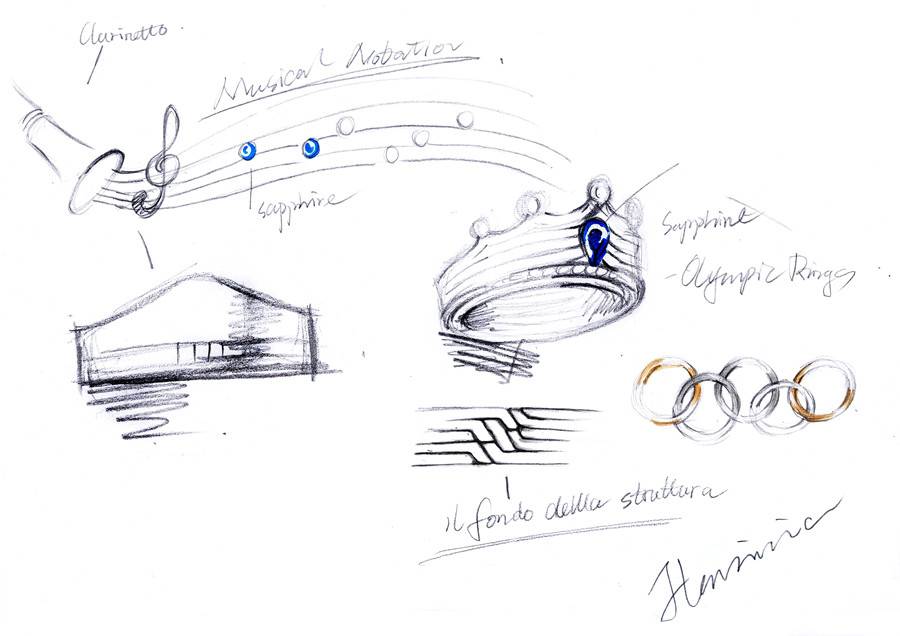 Clarinetto.
Musical Notation
sapphire
Sapphire
-Olympic Rings
il fondo della struttura